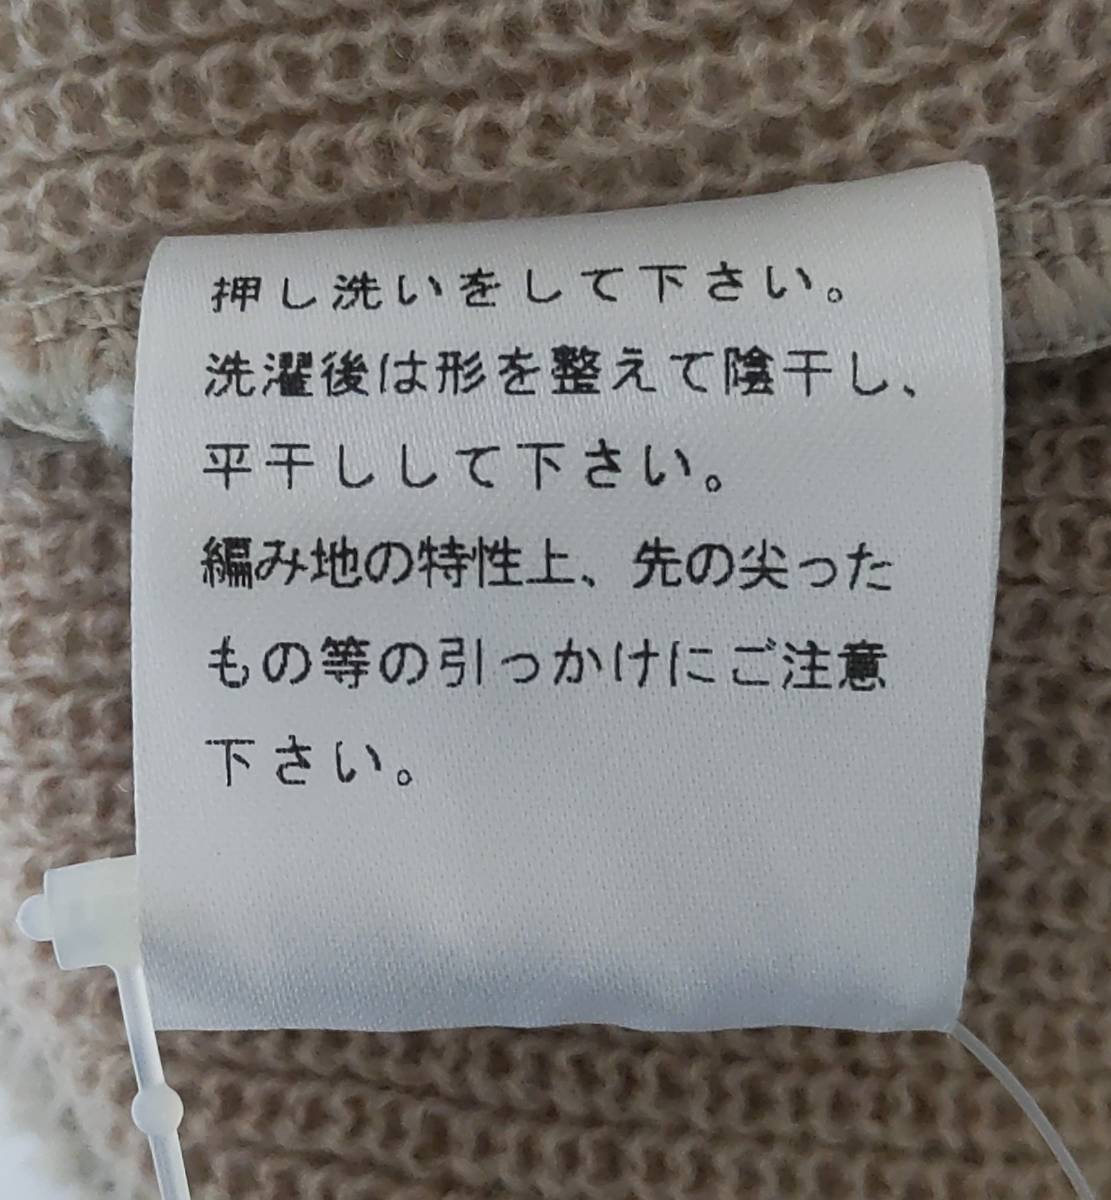 押し洗いをして下さい。
洗濯後は形を整えて陰干し、
平干ししして下さい。
編み地の特性上、先の尖った
もの等の引っかけにご注意
下さい。